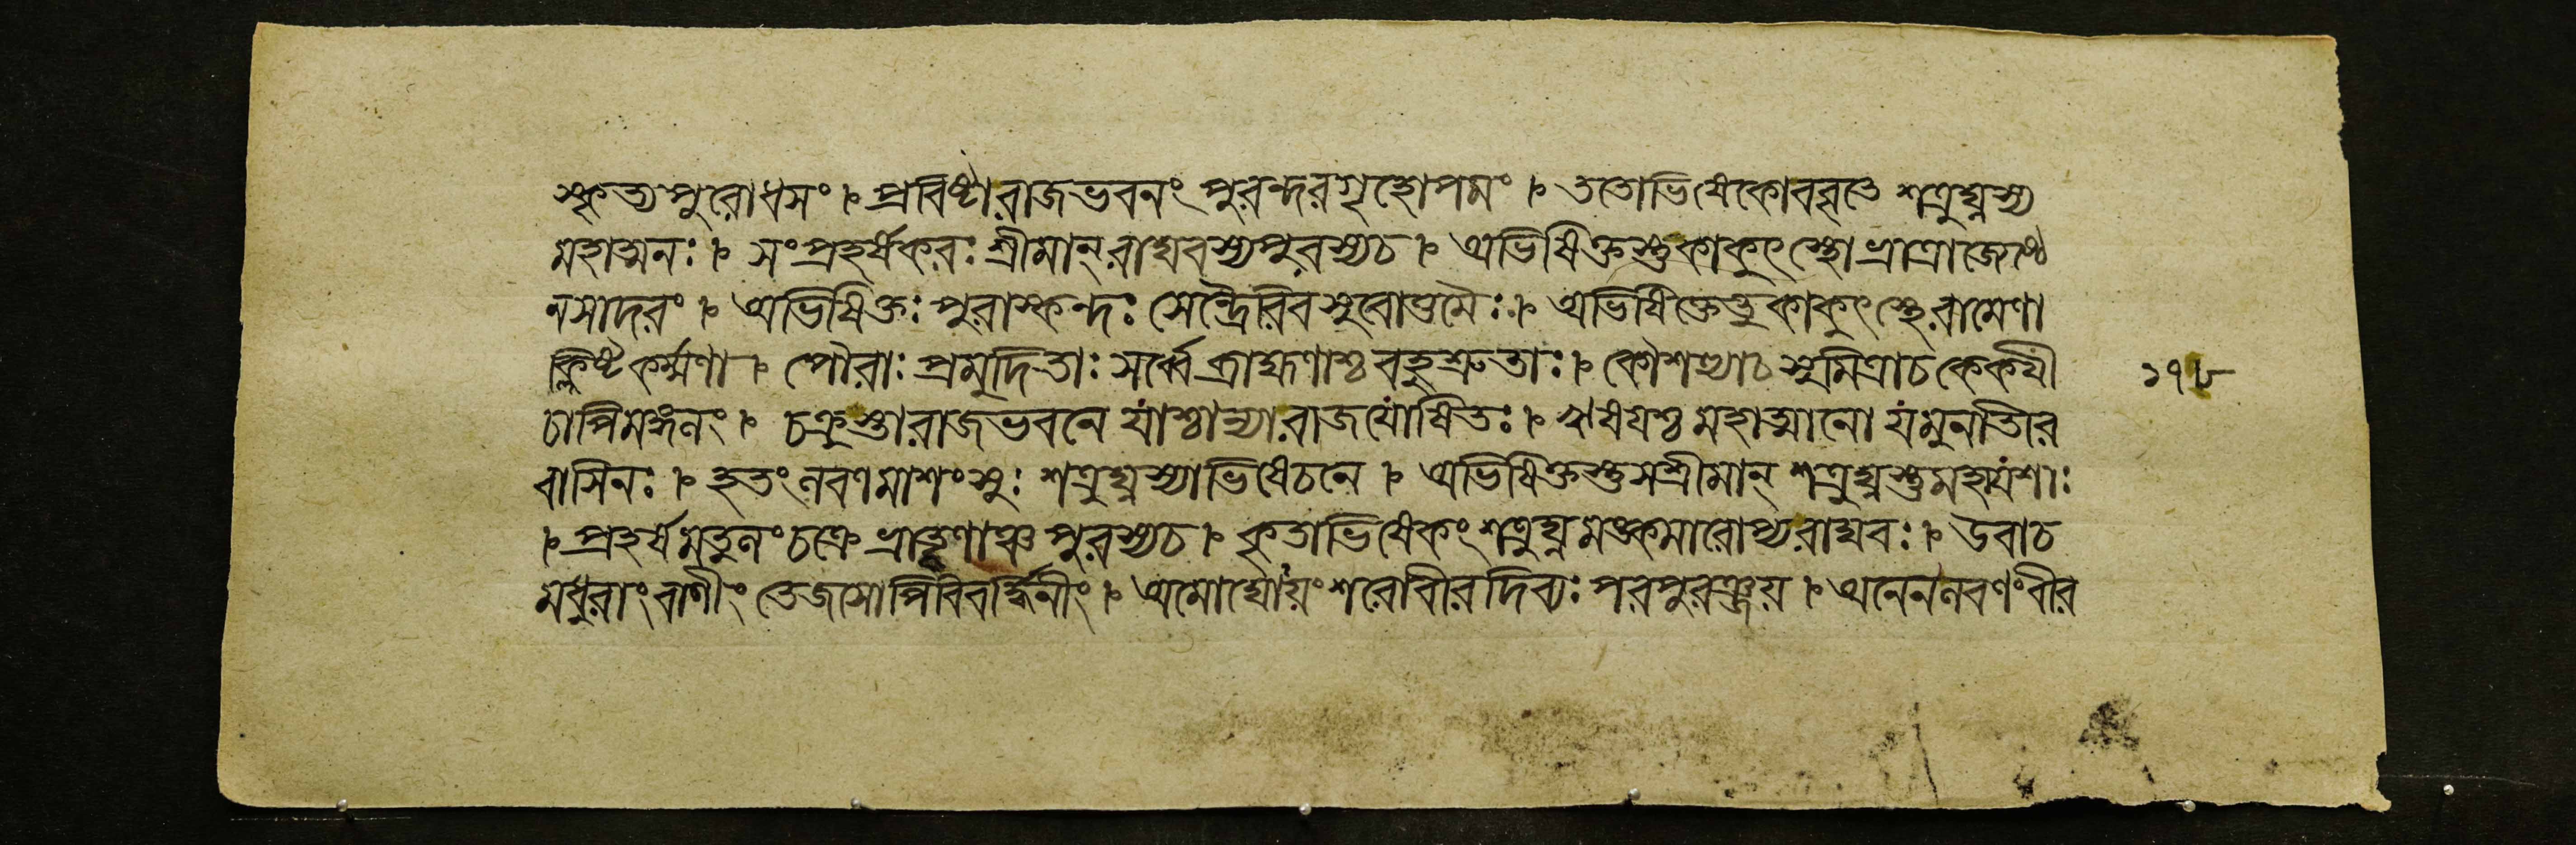 স্কৃত্য পুরোধসং । প্রবিষ্টারাজভবনং পুরন্দরগৃহোপমং । ততোভিষেকোববৃতে শত্রুঘ্নস্য
মহাত্মনঃ । সংপ্রহর্ষকরঃ শ্রীমান্ রাঘবস্যপুরস্যচ । অভিষিক্তস্তুকাকুৎস্থো ভ্রাত্রাজ্যেষ্ঠে
নসাদরং । অভিষিক্তঃ পুরাস্কন্দঃ সেন্দ্রৈরিবসুরোত্তমৈঃ । অভিষিক্তেতুকাকুৎস্থে রামেণা
ক্লিষ্টকর্ম্মণা । পৌরাঃ প্রমুদিতাঃ সর্ব্বেব্রাহ্মণাশ্চ বহুশ্রুতাঃ । কৌশল্যাচ সুমিত্রাচ কেকয়ী
চাপিমঙ্গলং । চক্রুস্তারাজভবনে যাশ্চান্যারাজযোষিতঃ । ঋষয়শ্চ মহাত্মানো যমুনাতীর
বাসিনঃ । হতংলবণমাশংসুঃ শত্রুঘ্নস্যাভিষেচনে । অভিষিক্তস্তুসশ্রীমান্ শত্রুঘ্নস্তুমহাযশাঃ
। প্রহর্ষমতুলংচক্রে ভ্রাতৄণাঞ্চ পুরস্যচ । কৃতাভিষেকংশত্রুঘ্নমঙ্কমারোপ্যরাঘবঃ । উবাচ
মধুরাংবাণীং তেজসোপিবিবর্দ্ধিনীং । অমোঘোয়ংশরোবীর দিব্যঃ পরপুরঞ্জয় । অনেনলবণংবীর
১৭৮